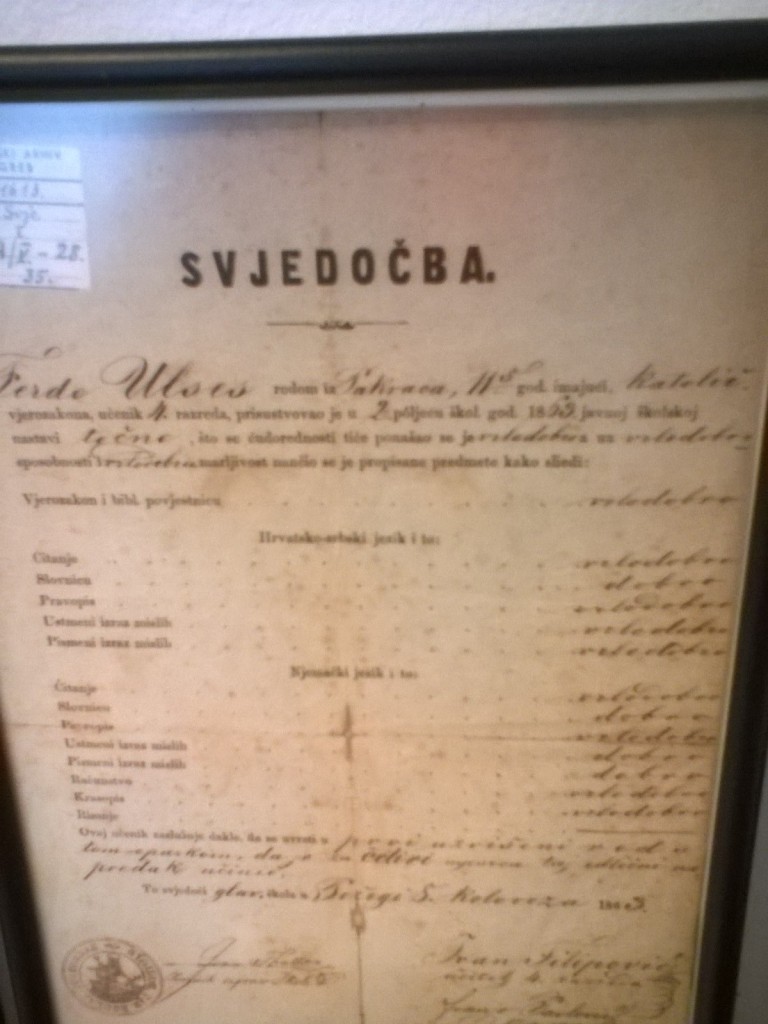 SVJEDOČBA.
Ferdo Ulses rodom iz Pakraca, 11 god. imajući, Katolič.
vjerozakona, učenik 4. razreda, prisustvovao je u 2 polječu škol. god. 1863 javnoj školskoj
nastavi tečno, što se ćudorednosti tiče ponašao se je vrlodobro uz vrlodobre
sposobnosti i vrlodobru marljivost naučio se je propisane predmete kako sliedi:
Vjerozakon i bibl. povjestnicu vrlodobro
Hrvatsko-srbski jezik i to:
Čitanje vrlodobro
Slovnicu dobro
Pravopis vrlodobro
Ustmeni izraz mislih vrlodobro
Pismeni izraz mislih vrlodobro
Njemački jezik i to:
Čitanje vrlodobro
Slovnicu dobro
Pravopis vrlodobro
Ustmeni izraz mislih dobro
Pismeni izraz mislih dobro
Računstvo vrlodobro
Krasopis vrlodobro
Risanje
Ovaj učenik zaslužuje dakle, da se uvrsti u prvi uzvišeni red
predak učinio.
To svjedoči glav. škola u Požegi 5. Kolovoza 1863.
Ivan Filipović
učitelj 4. razreda